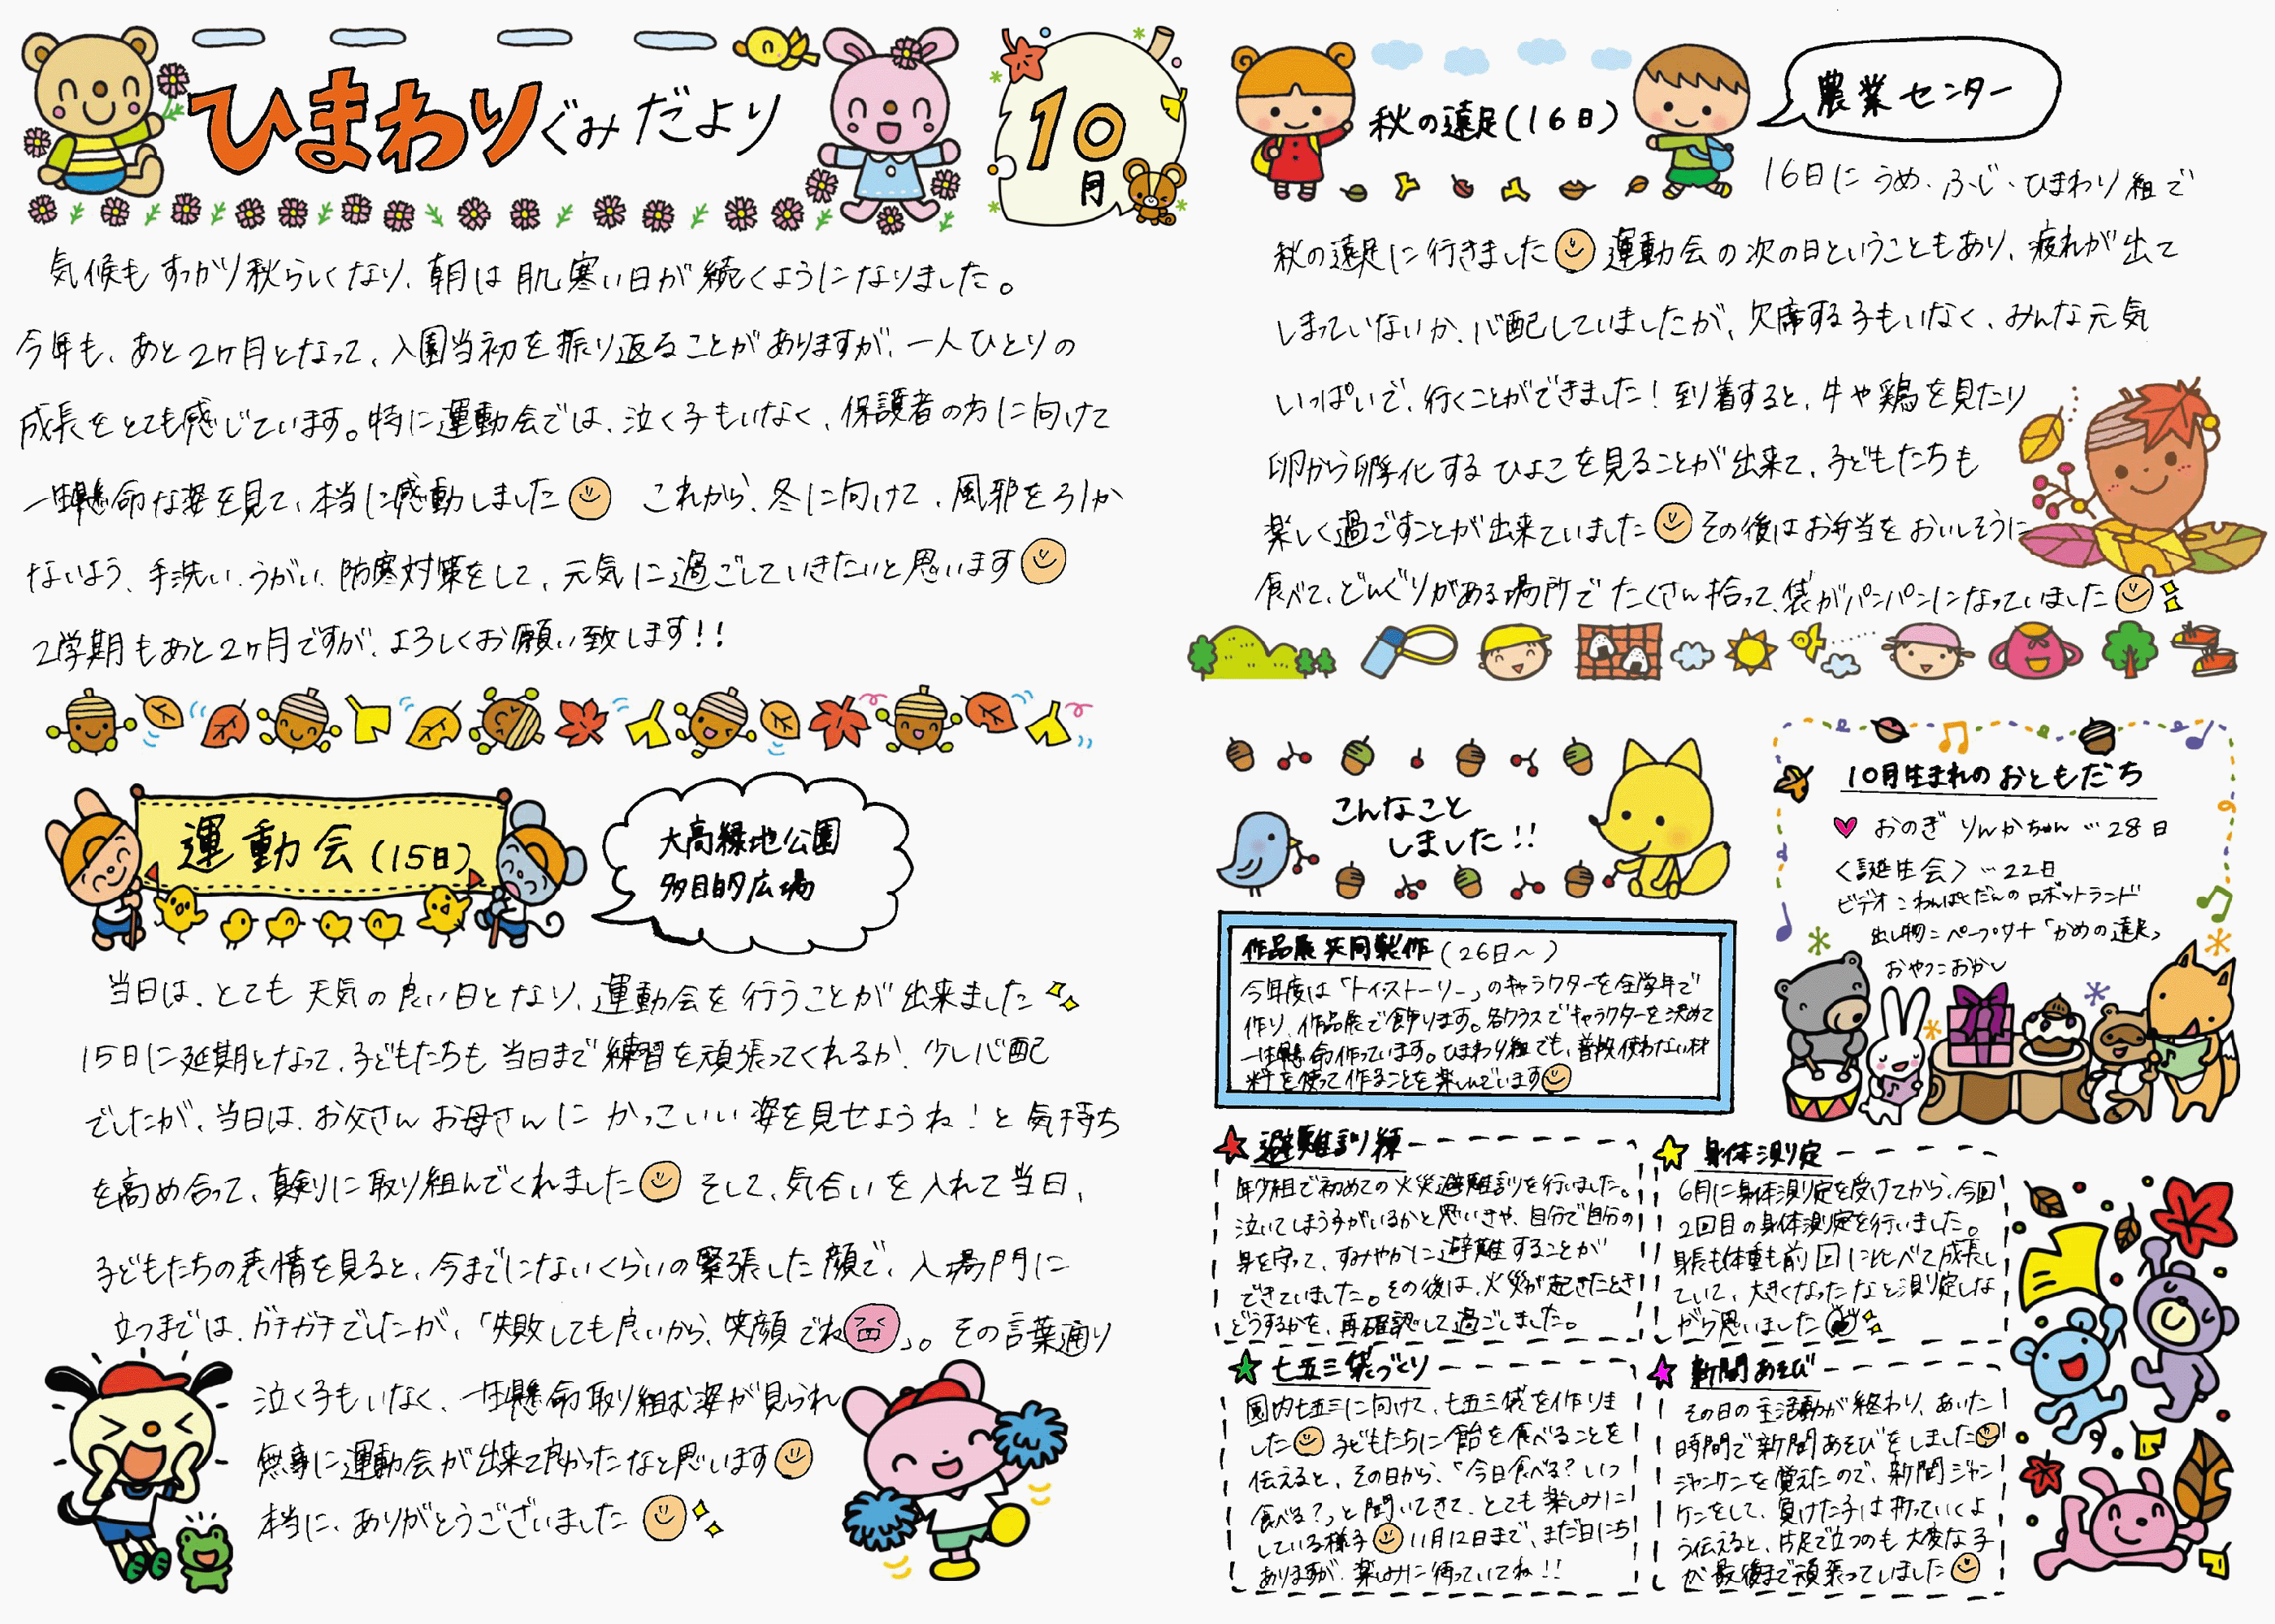 ひまわりぐみだより
10月
気候もすっかり秋らしくなり、朝は肌寒い日が続くようになりました。
今年も、あと2ヶ月となって、入園当初を振り返ることがありますが、一人ひとりの
成長をとても感じています。特に運動会では、泣く子もいなく、保護者の方に向けて
一生懸命な姿を見て、本当に感動しました
これから、冬に向けて、風邪をひか
ないよう、手洗い、うがい、防寒対策をして、元気に過ごしていきたいと思います
2学期もあと2ヶ月ですが、よろしくお願い致します!!
運動会(15日)
大高緑地公園
多目的広場
当日は、とても天気の良い日となり、運動会を行うことが出来ました
15日に延期となって、子どもたちも当日まで練習を頑張ってくれるか、少し心配
でしたが、当日は、お父さんお母さんにかっこいい姿を見せようね!と気持ち
を高め合って、真剣に取り組んでくれました そして、気合いを入れて当日、
子どもたちの表情を見ると、今までにないくらいの緊張した顔で、入場門に
立つまでは、ガチガチでしたが、「失敗しても良いから、笑顔でね」。その言葉通り
泣く子もいなく、一生懸命取り組む姿が見られ
無事に運動会が出来て良かったなと思います
本当に、ありがとうございました
秋の遠足(16日)
農業センター
16日にうめ・ふじ・ひまわり組で
秋の遠足に行きました 運動会の次の日ということもあり、疲れが出て
しまっていないか、心配していましたが、欠席する子もいなく、みんな元気
いっぱいで、行くことができました!到着すると、牛や鶏を見たり
卵から孵化するひよこを見ることが出来て、子どもたちも
楽しく過ごすことが出来ていました その後はお弁当をおいしそうに
食べて、どんぐりがある場所でたくさん拾って、袋がパンパンになっていました
こんなこと
しました!!
10月生まれのおともだち
おのぎ りんかちゃん…28日
〈誕生会〉…22日
ビデオ:わんぱくだんのロボットランド
出し物:ペープサート「かめの遠足」
おやつ:おかし
作品展共同製作(26日~)
今年度は「トイストーリー」のキャラクターを全学年で
作り、作品展で飾ります。各クラスでキャラクターを決めて
一生懸命作っています。ひまわり組でも、普段使わない材
料を使って作ることを楽しんでいます
避難訓練
年少組で初めての火災避難訓を行いました。
泣いてしまう子がいるかと思いきや、自分で自分の
身を守って、すみやかに避難することが
できていました。その後は、火災が起きたとき
どうするかを、再確認して過ごしました。
身体測定
6月に身体測定を受けてから、今回
2回目の身体測定を行いました。
身長も体重も前回に比べて成長し
ていて、大きくなったなと測定しな
がら思いました
七五三袋づくり
園内七五三に向けて、七五三袋を作りま
した 子どもたちに飴を食べることを
伝えると、その日から、「今日食べる?いつ
食べる?」と聞いてきて、とても楽しみに
している様子 11月12日まで、まだ日にち
ありますが、楽しみに待っていてね!!
新聞あそび
その日の主活動が終わり、あいた
時間で新聞あそびをしました
ジャンケンを覚えたので、新聞ジャン
ケンをして、負けた子は折っていくよ
う伝えると、片足で立つのも大変な子
が最後まで頑張っていました